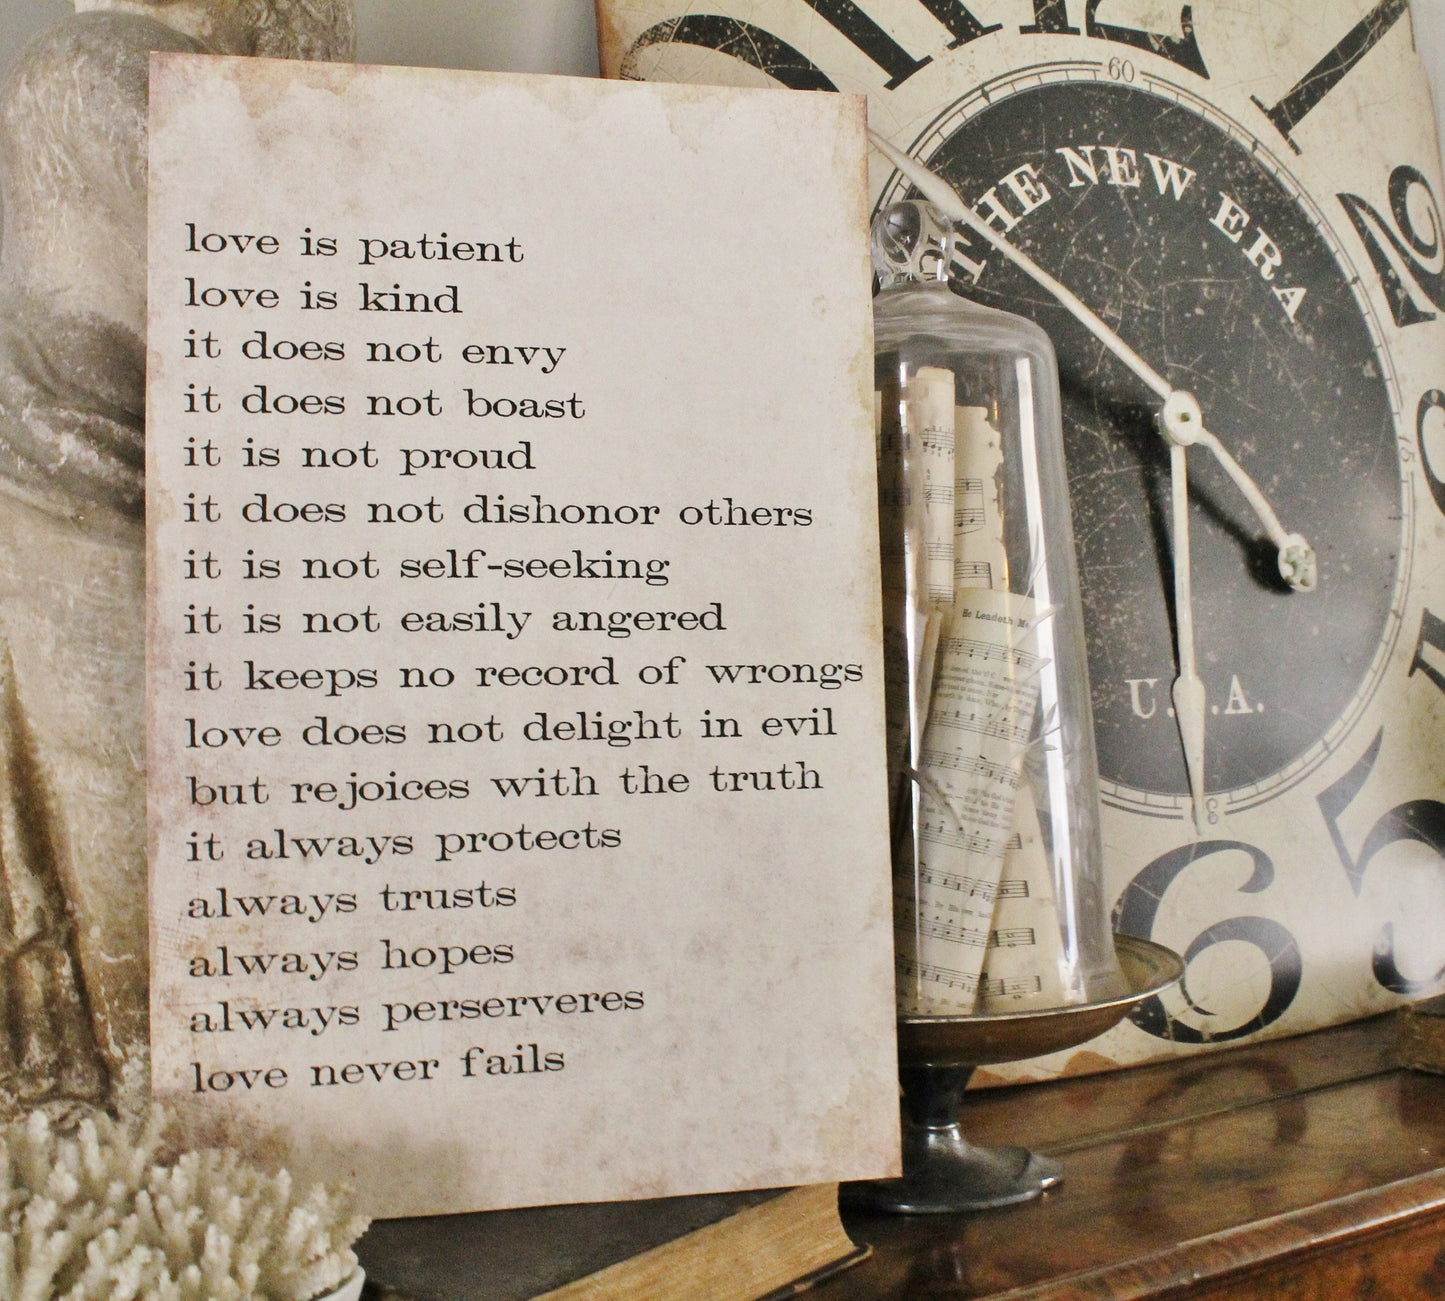 love is patient
love is kind
it does not envy
it does not boast
it is not proud
it does not dishonor others
it is not self-seeking
it is not easily angered
it keeps no record of wrongs
love does not delight in evil
but rejoices with the truth
it always protects
always trusts
always hopes
always perserveres
love never fails
60
THE NEW ERA
1
2
15
U.S.A.
5
6
He Leadeth Me